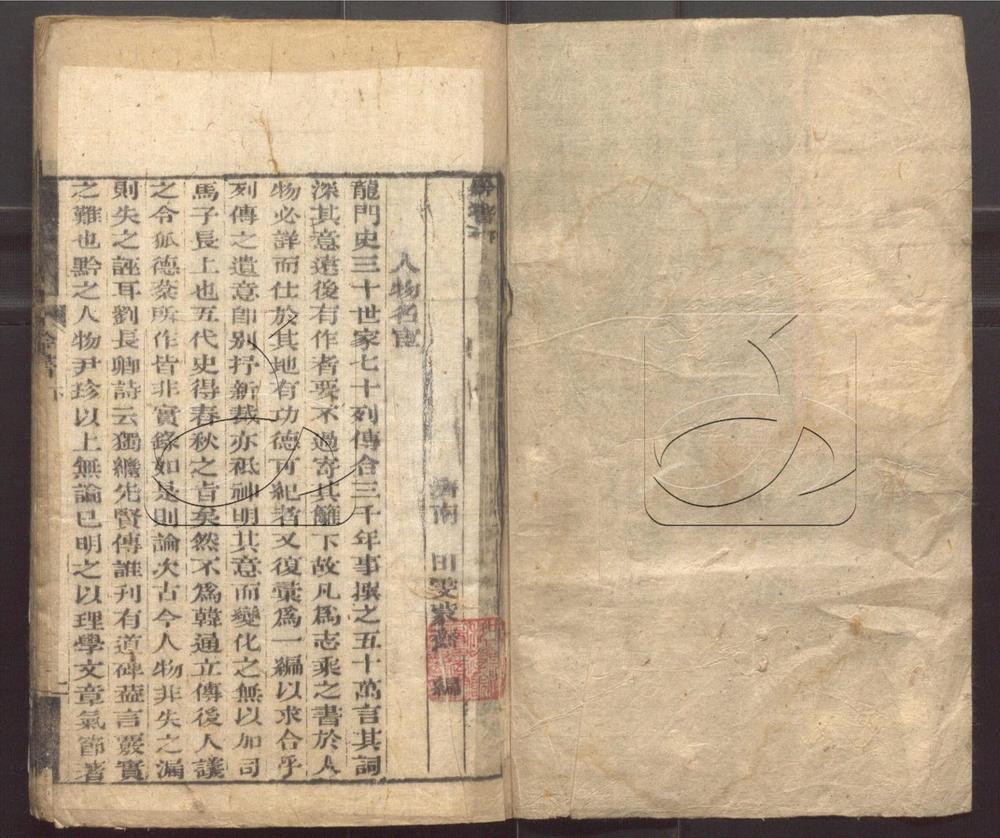 黔書下
濟南 田雯蒙齋 編
人物名宦
龍門史三十世家七十列傳合三千年事撰之五十萬言其詞
深其意遠後有作者要不過寄其籬下故凡為志乘之書於人
物必詳而仕於其地有功德可紀者又復彙為一編以求合乎
列傳之遺意卽別抒新裁亦祗神明其意而變化之無以加司
馬子長上也五代史得春秋之旨矣然不為韓通立傳後人議
之令狐德棻所作皆非實錄如是則論次古今人物非失之漏
則失之誣耳劉長卿詩云獨繼先賢傳誰刊有道碑葢言覈實
之難也黔之人物尹珍以上無論已明之以理學文章氣節著